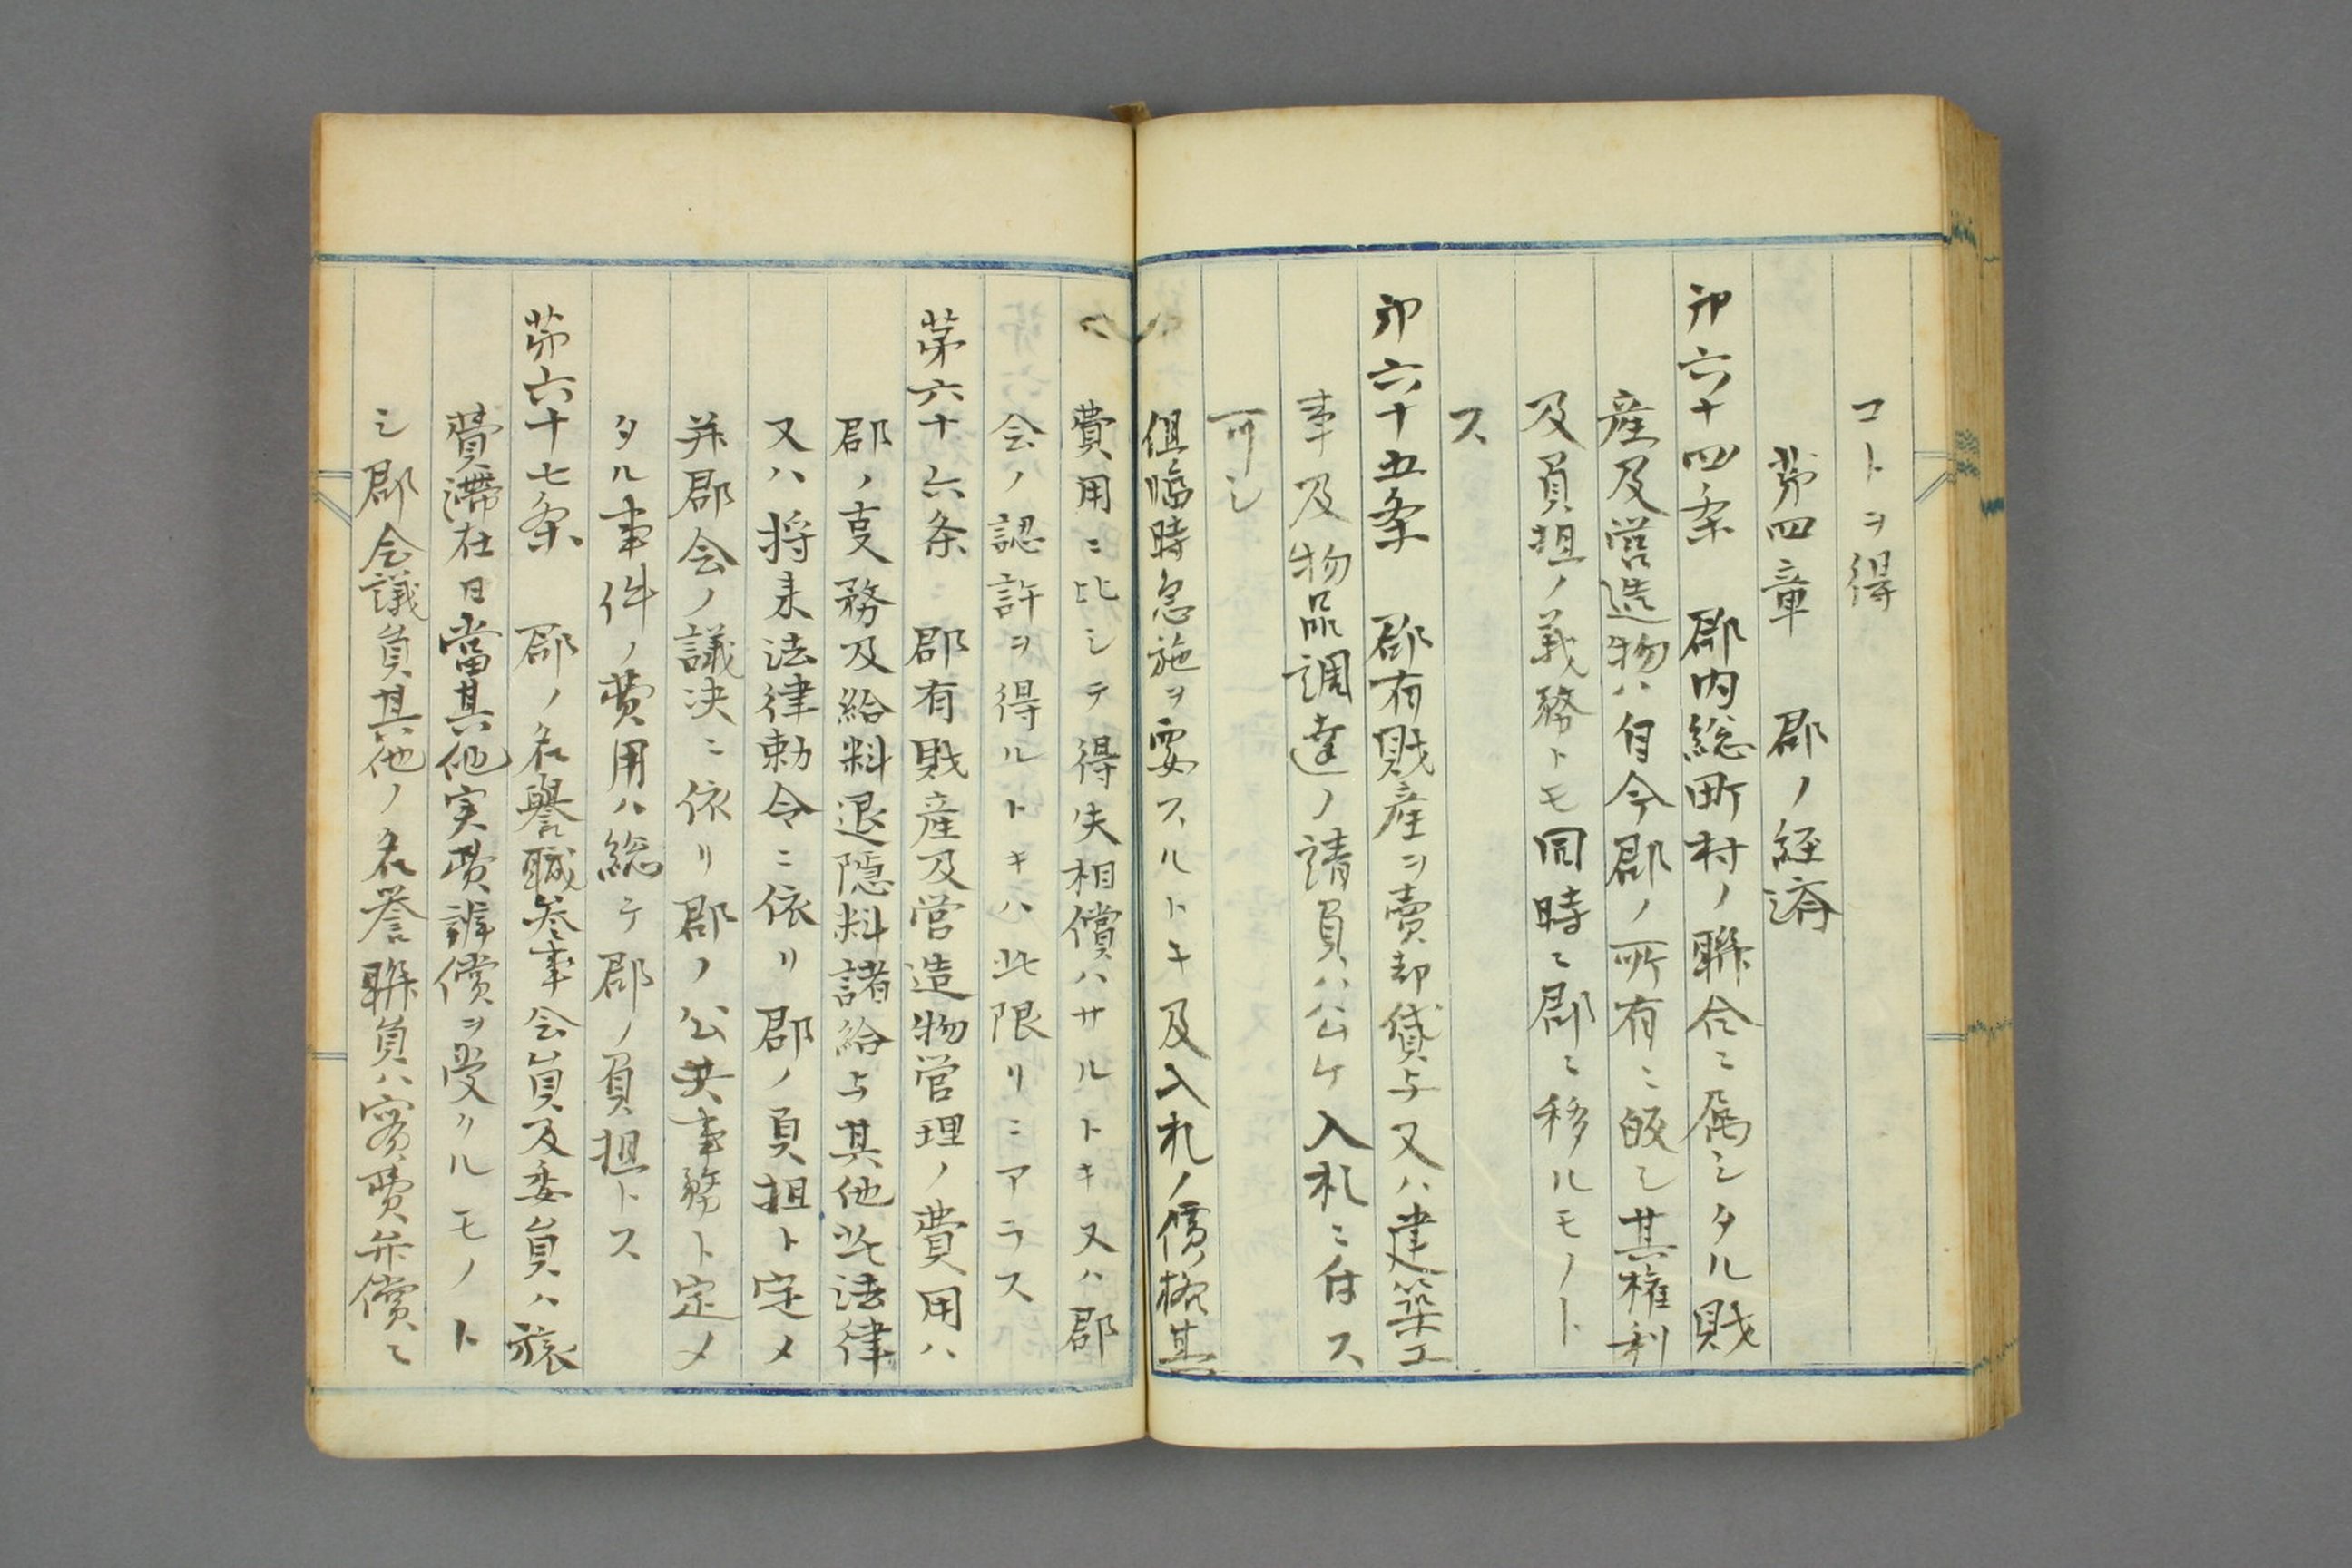 コトヲ得
第四章　郡ノ経済
第六十四条　郡内総町村ノ聯合ニ属シタル財
産及営造物ハ自今郡ノ所有ニ皈シ其権利
及負担ノ義務トモ同時ニ郡ニ移ルモノト
ス
第六十五条　郡有財産ヲ賣却貸与又ハ建築工
事及物品調達ノ請負ハ公ケ入札ニ付ス
可シ
但臨時急施ヲ要スルトキ及入札ノ價格其
費用ニ比シテ得失相償ハサルトキ又ハ郡
会ノ認許ヲ得ルトキハ此限リニアラス
第六十六条　郡有財産及営造物管理ノ費用ハ
郡ノ吏務及給料退隠料諸給与其他此法律
又ハ将来法律勅令ニ依リ郡ノ負担ト定メ
并郡会ノ議決ニ依リ郡ノ公共事務ト定メ
タル事件ノ費用ハ総テ郡ノ負担トス
第六十七条　郡ノ名譽職参事会員及委員ハ旅
費滞在日當其他実費辨償ヲ受クルモノト
シ郡会議員其他ノ名誉職員ハ實費弁償ニ